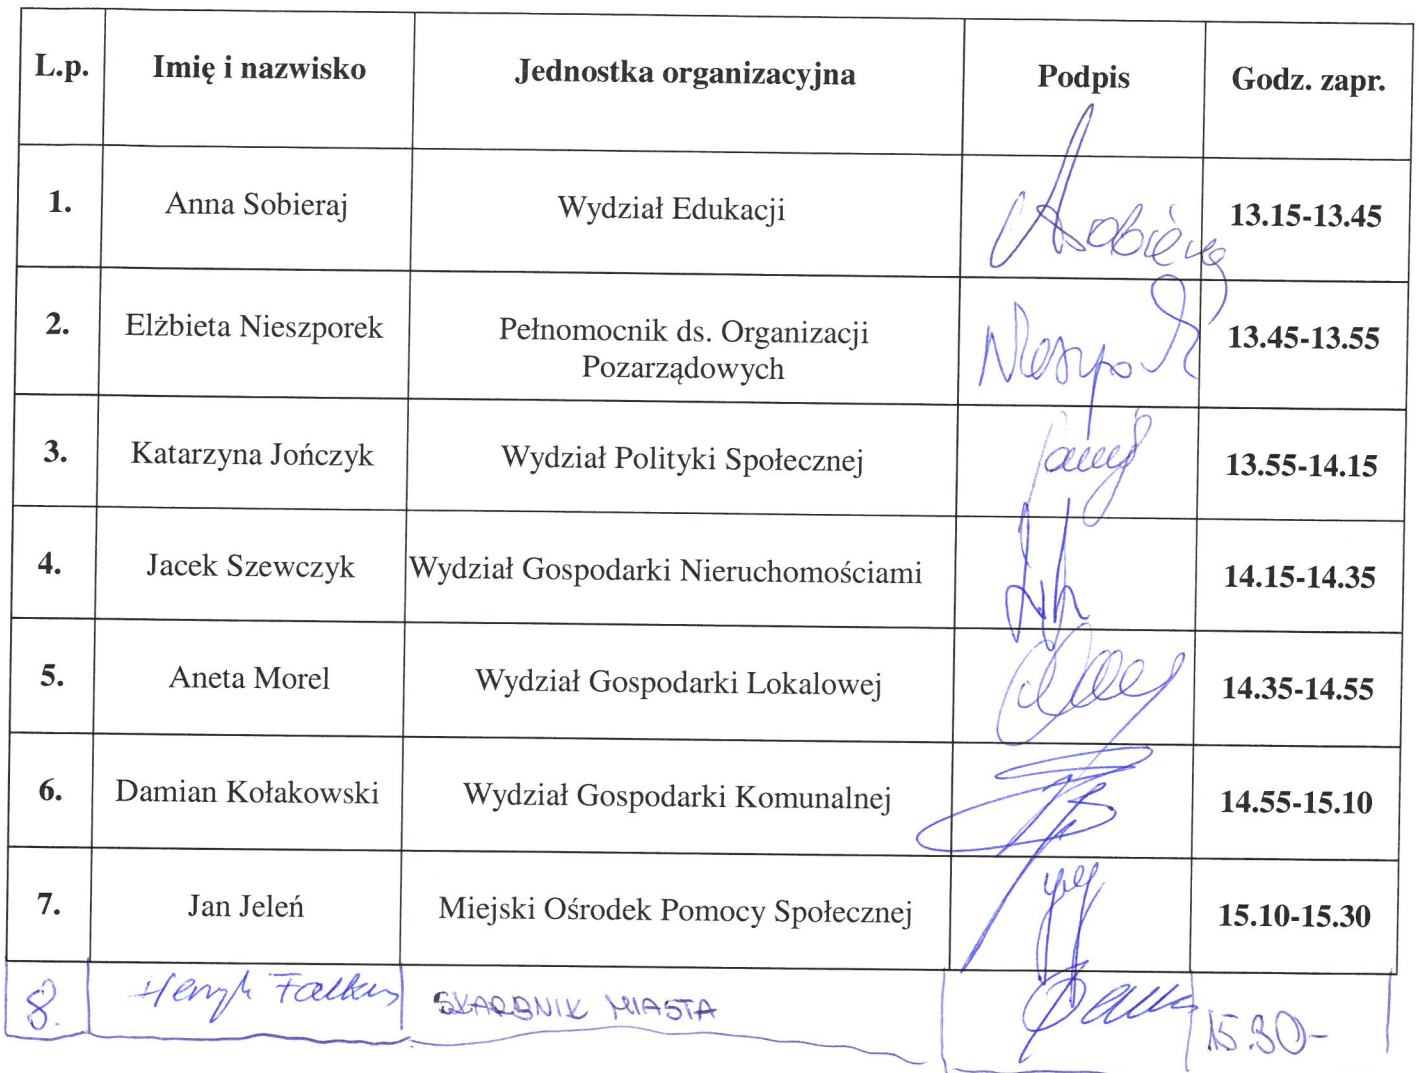 L.p. Imię i nazwisko Jednostka organizacyjna Podpis Godz. zapr.
1. Anna Sobieraj Wydział Edukacji 13.15-13.45
2. Elżbieta Nieszporek Pełnomocnik ds. Organizacji
Pozarządowych 13.45-13.55
3. Katarzyna Jończyk Wydział Polityki Społecznej 13.55-14.15
4. Jacek Szewczyk Wydział Gospodarki Nieruchomościami 14.15-14.35
5. Aneta Morel Wydział Gospodarki Lokalowej 14.35-14.55
6. Damian Kołakowski Wydział Gospodarki Komunalnej 14.55-15.10
7. Jan Jeleń Miejski Ośrodek Pomocy Społecznej 15.10-15.30
8. Henryk Falkus SKARBNIK MIASTA 15.30-